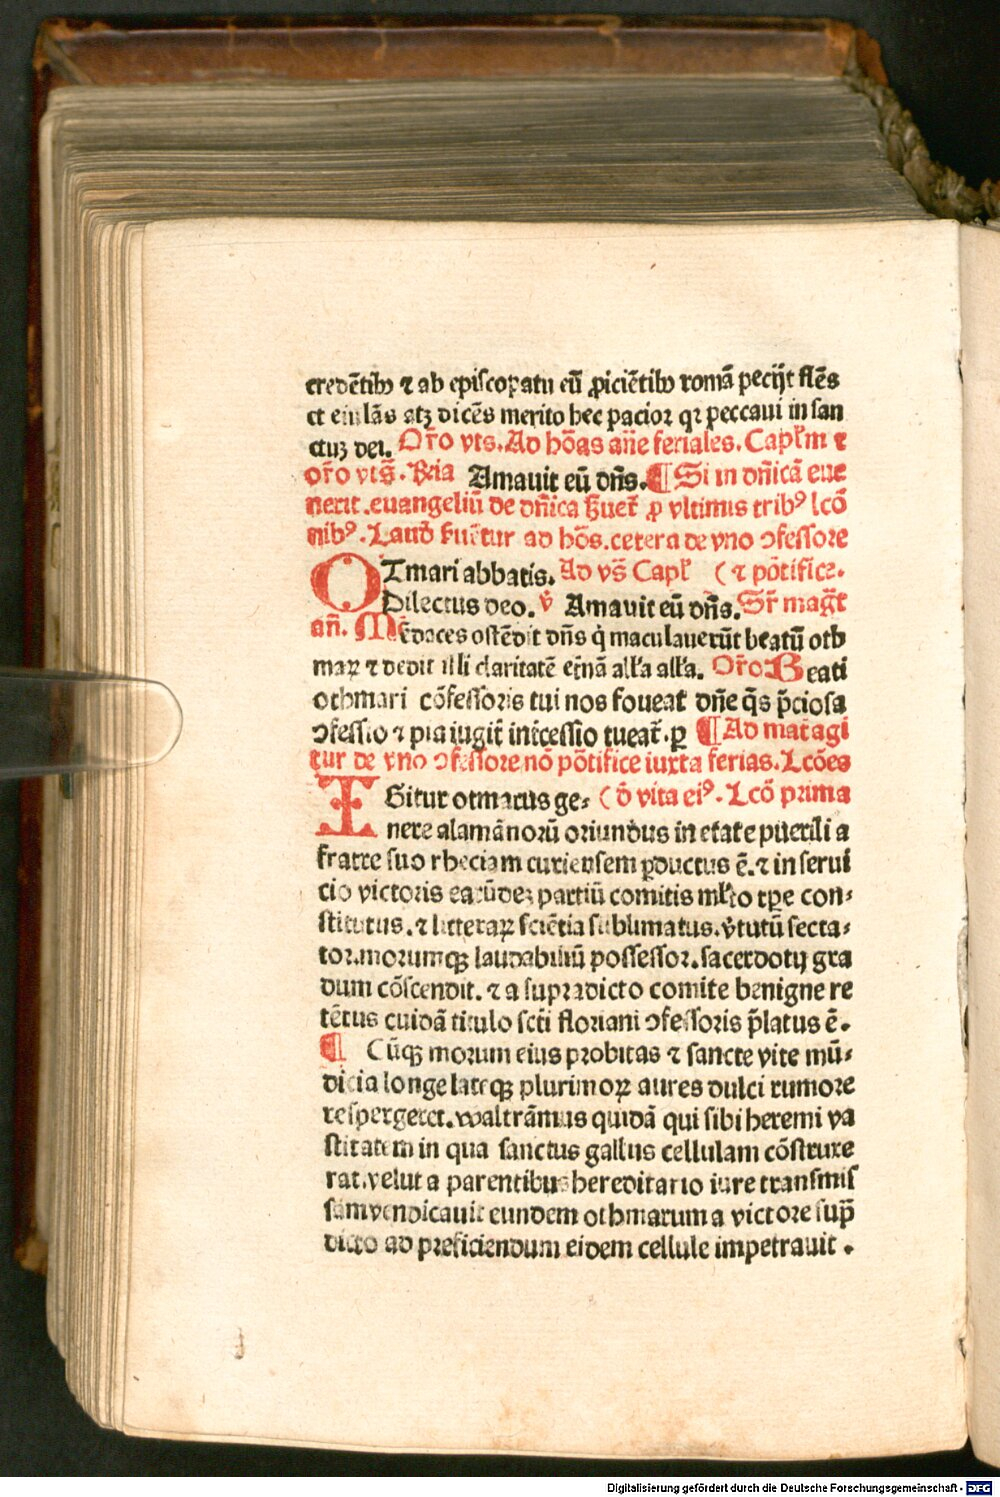 credētibꝰ ⁊ ab episcopatu eū ꝓiciētibꝰ romā pecijt flēs
et eiulās atqꝫ dicēs merito hec pacior qꝛ peccaui in san
ctuꝫ dei. Or̄o vts. Ad hōas an̄e feriales. Capl̄m ⁊
or̄o vts̄. Amauit eū dn̄s. ¶ Si in dn̄icā eue
nerit .euangeliū de dn̄ica ꝓ vltimis tribꝰ lcō
nibꝰ. ad hōs. cetera de vno ↄfessore
OTmari abbatis. Ad vs̄ Capl̄ ( ⁊ pōtifice.
Dilectus deo. v̄ Amauit eū dn̄s. Sr̄ mag̅t
an̄. Mēdaces ostēdit dn̄s q̇ maculauerūt beatū oth
maꝝ ⁊ dedit illi claritatē et̄nā all'a all'a. Or̄o Beati
othmari cōfessoris tui nos foueat dn̄e qs̄ p̄ciosa
ↄfessio ⁊ pia iugit̄ int̄cessio tueat̄. ꝑ ¶ Ad mat̄ agi
tur de vno ↄfessore nō pōtifice iuxta ferias. Lcōes
IGitur otmarus ge⸗ ( d̄ vita eiꝰ. Lcō prima
nere alamānorū oriundus in etate puerili a
fratre suo rheciam curiensem ꝑductus ē. ⁊ in serui
cio victoris earūdeꝫ partiū comitis ml̄to tꝑe con⸗
stitutus. ⁊ litteraꝝ sciētia sublimatus. v̄tutū secta⸗
tor. morumqꝫ laudabiliū possessor. sacerdotij gra
dum cōscendit. ⁊ a supradicto comite benigne re
tētus cuidā titulo sct̄i floriani ↄfessoris p̄latus ē.
¶ Cūqꝫ morum eius probitas ⁊ sancte vite mū⸗
dicia longe lateqꝫ plurimoꝝ aures dulci rumore
respergeret. waltrāmus quidā qui sibi heremi va
stitatem in qua sanctus gallus cellulam cōstruxe
rat. velut a parentibus hereditario iure transmis
sam vendicauit eundem othmarum a victore sup̄
dicto ad preficiendum eidem cellule impetrauit .
Digitalisierung gefördert durch die Deutsche Forschungsgemeinschaft - DFG